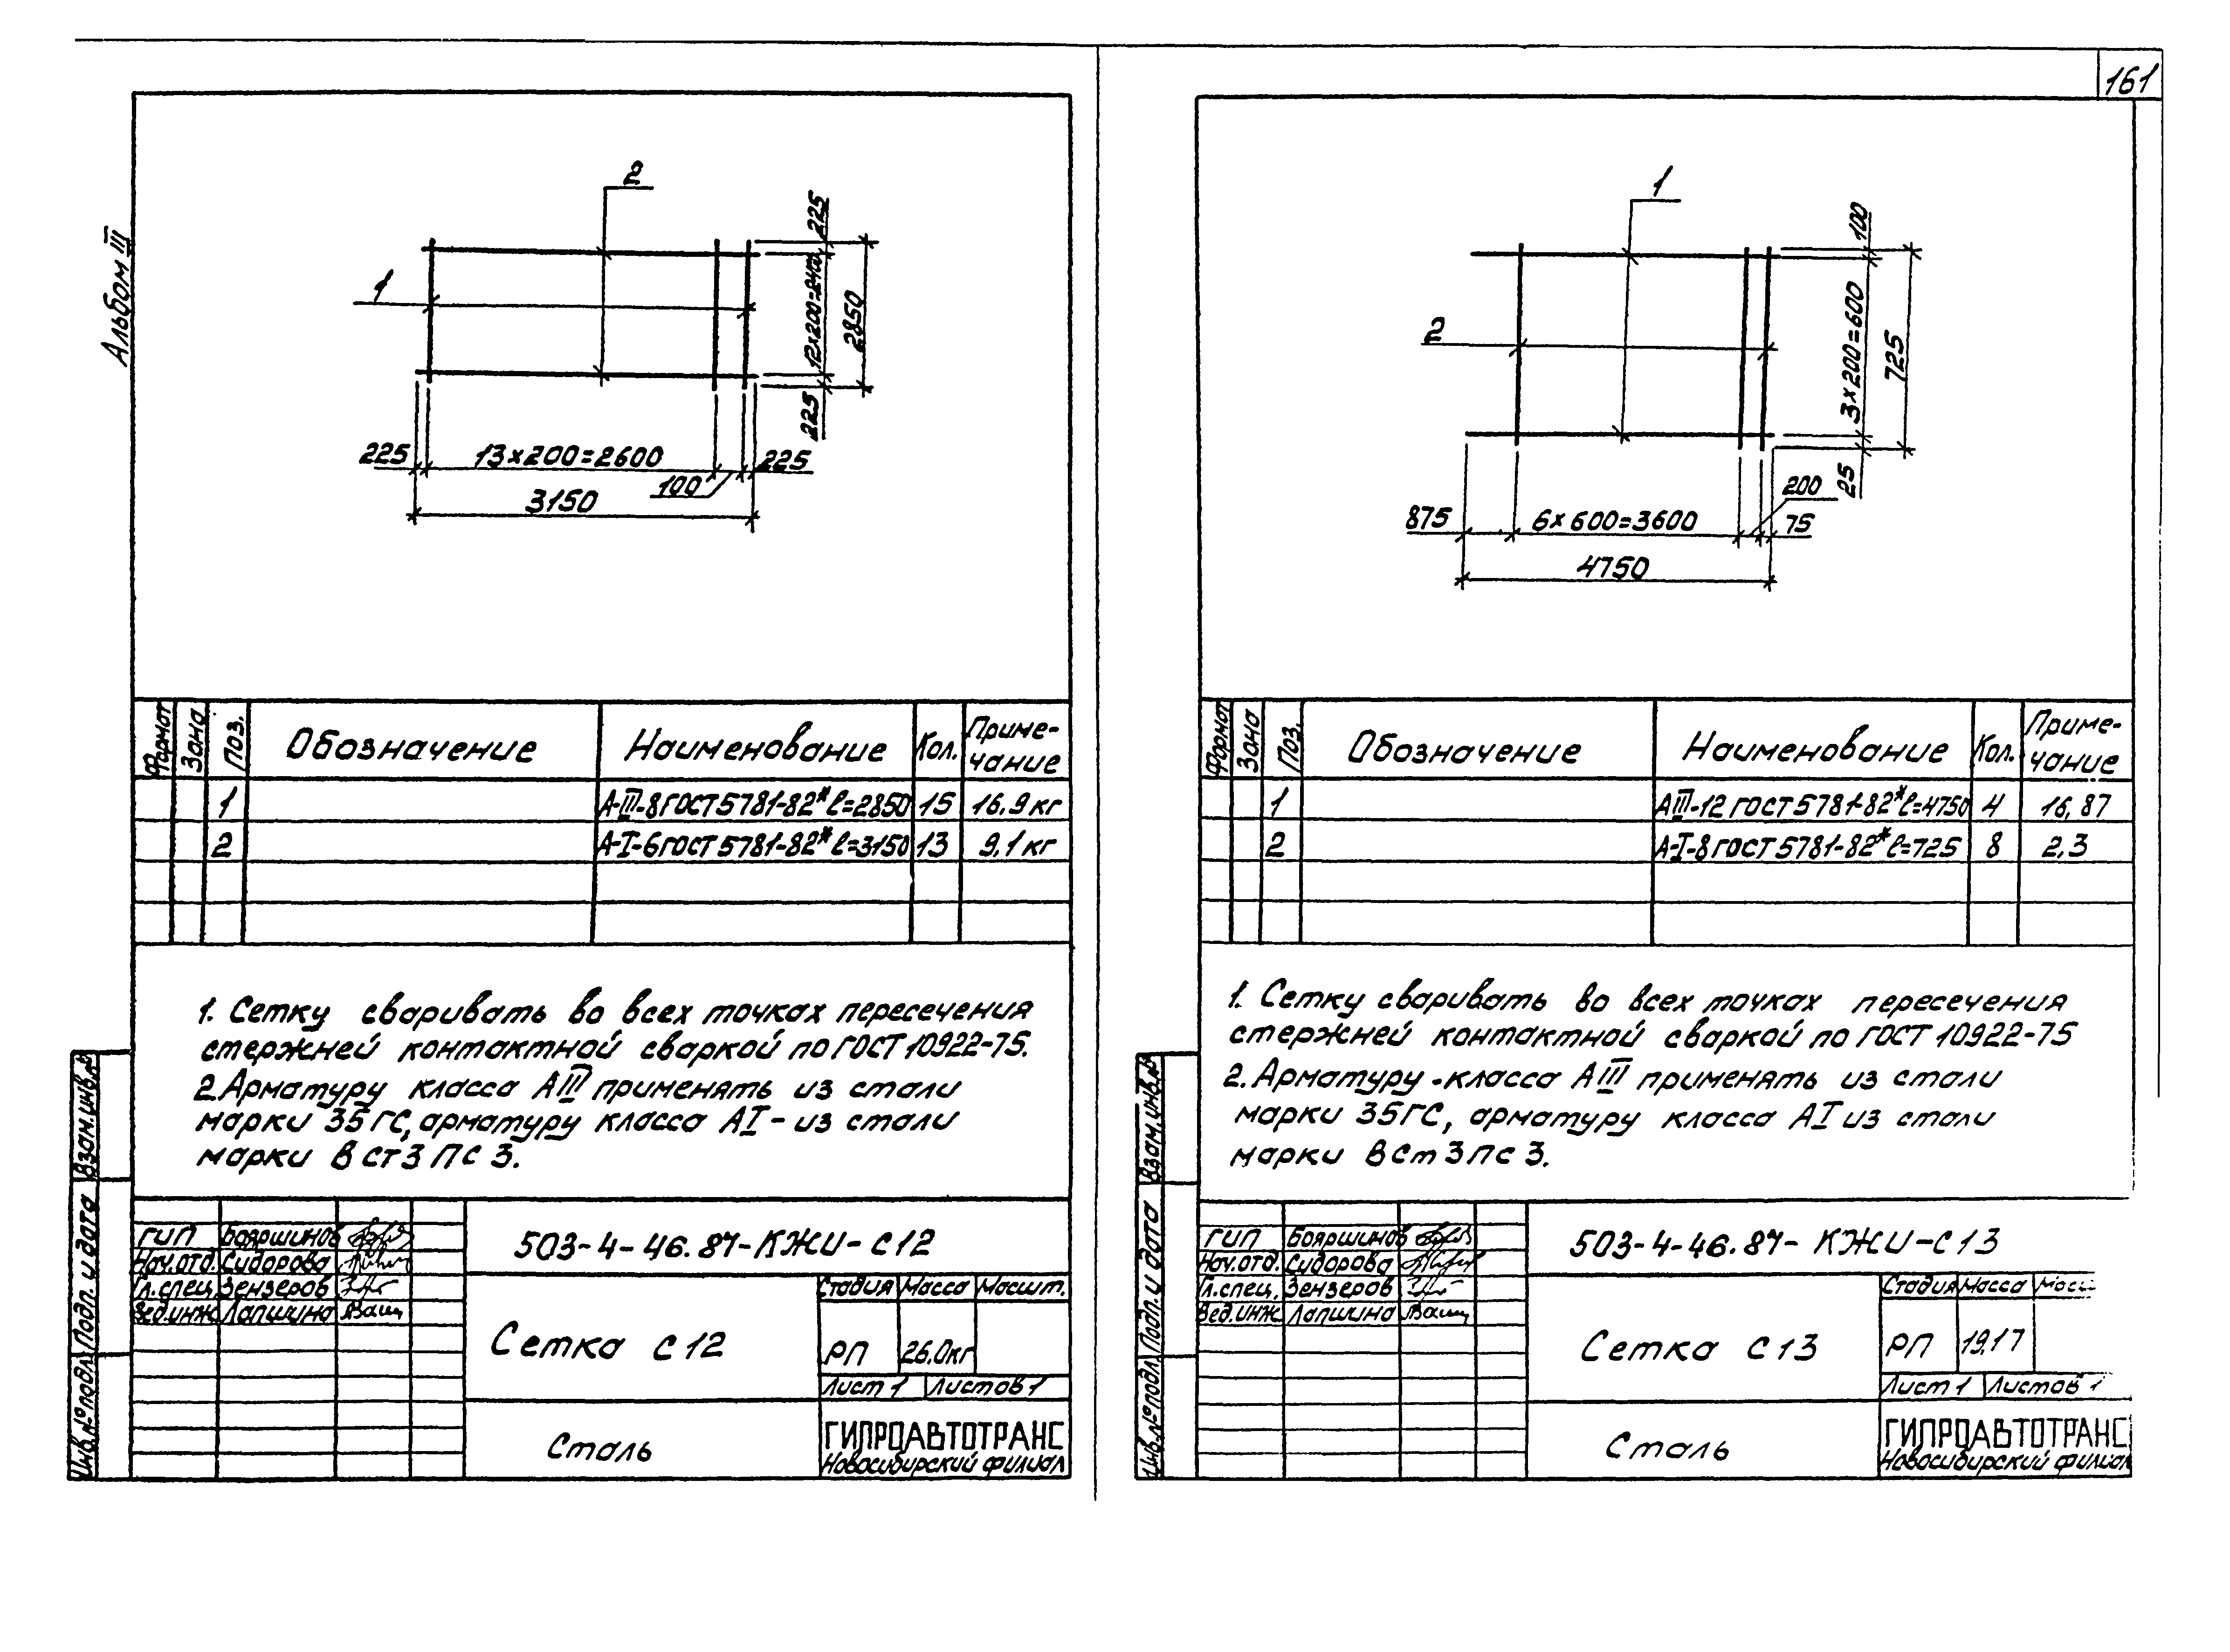 161
Альбом III
2
1
225
12×200=2400
2850
225
225
13×200=2600
225
100
3150
Формат
Зона
Поз.
Обозначение
Наименование
Кол.
Приме-
чание
1 А-III-8 ГОСТ 5781-82* ℓ=2850 15 16,9 кг
2 А-I-6 ГОСТ 5781-82* ℓ=3150 13 9,1 кг
1. Сетку сваривать во всех точках пересечения
стержней контактной сваркой по ГОСТ 10922-75.
2. Арматуру класса АIII применять из стали
марки 35ГС, арматуру класса АI – из стали
марки ВСт3пс3.
Взам.инв.№
Подп. и дата
Инв.№подл.
ГИП Бояршинов
Нач.отд. Сидорова
Гл.спец. Зензеров
Вед.инж Лапшина
503-4-46.87-КЖИ-С12
Сетка С12
Стадия Масса Масшт.
РП 26.0кг
Лист 1 Листов 1
Сталь
ГИПРОАВТОТРАНС
Новосибирский филиал
1
2
100
3×200=600
725
25
200
875
6×600=3600
75
4750
Формат
Зона
Поз.
Обозначение
Наименование
Кол.
Приме-
чание
1 АIII-12 ГОСТ 5781-82* ℓ=4750 4 16,87
2 А-I-8 ГОСТ 5781-82* ℓ=725 8 2,3
1. Сетку сваривать во всех точках пересечения
стержней контактной сваркой по ГОСТ 10922-75
2. Арматуру класса АIII применять из стали
марки 35ГС, арматуру класса АI из стали
марки ВСт3пс3.
Взам.инв.№
Подп. и дата
Инв.№подл.
ГИП Бояршинов
Нач.отд. Сидорова
Гл.спец. Зензеров
Вед.инж Лапшина
503-4-46.87-КЖИ-С13
Сетка С13
Стадия Масса
РП 19,17
Лист 1 Листов 1
Сталь
ГИПРОАВТОТРАНС
Новосибирский филиал